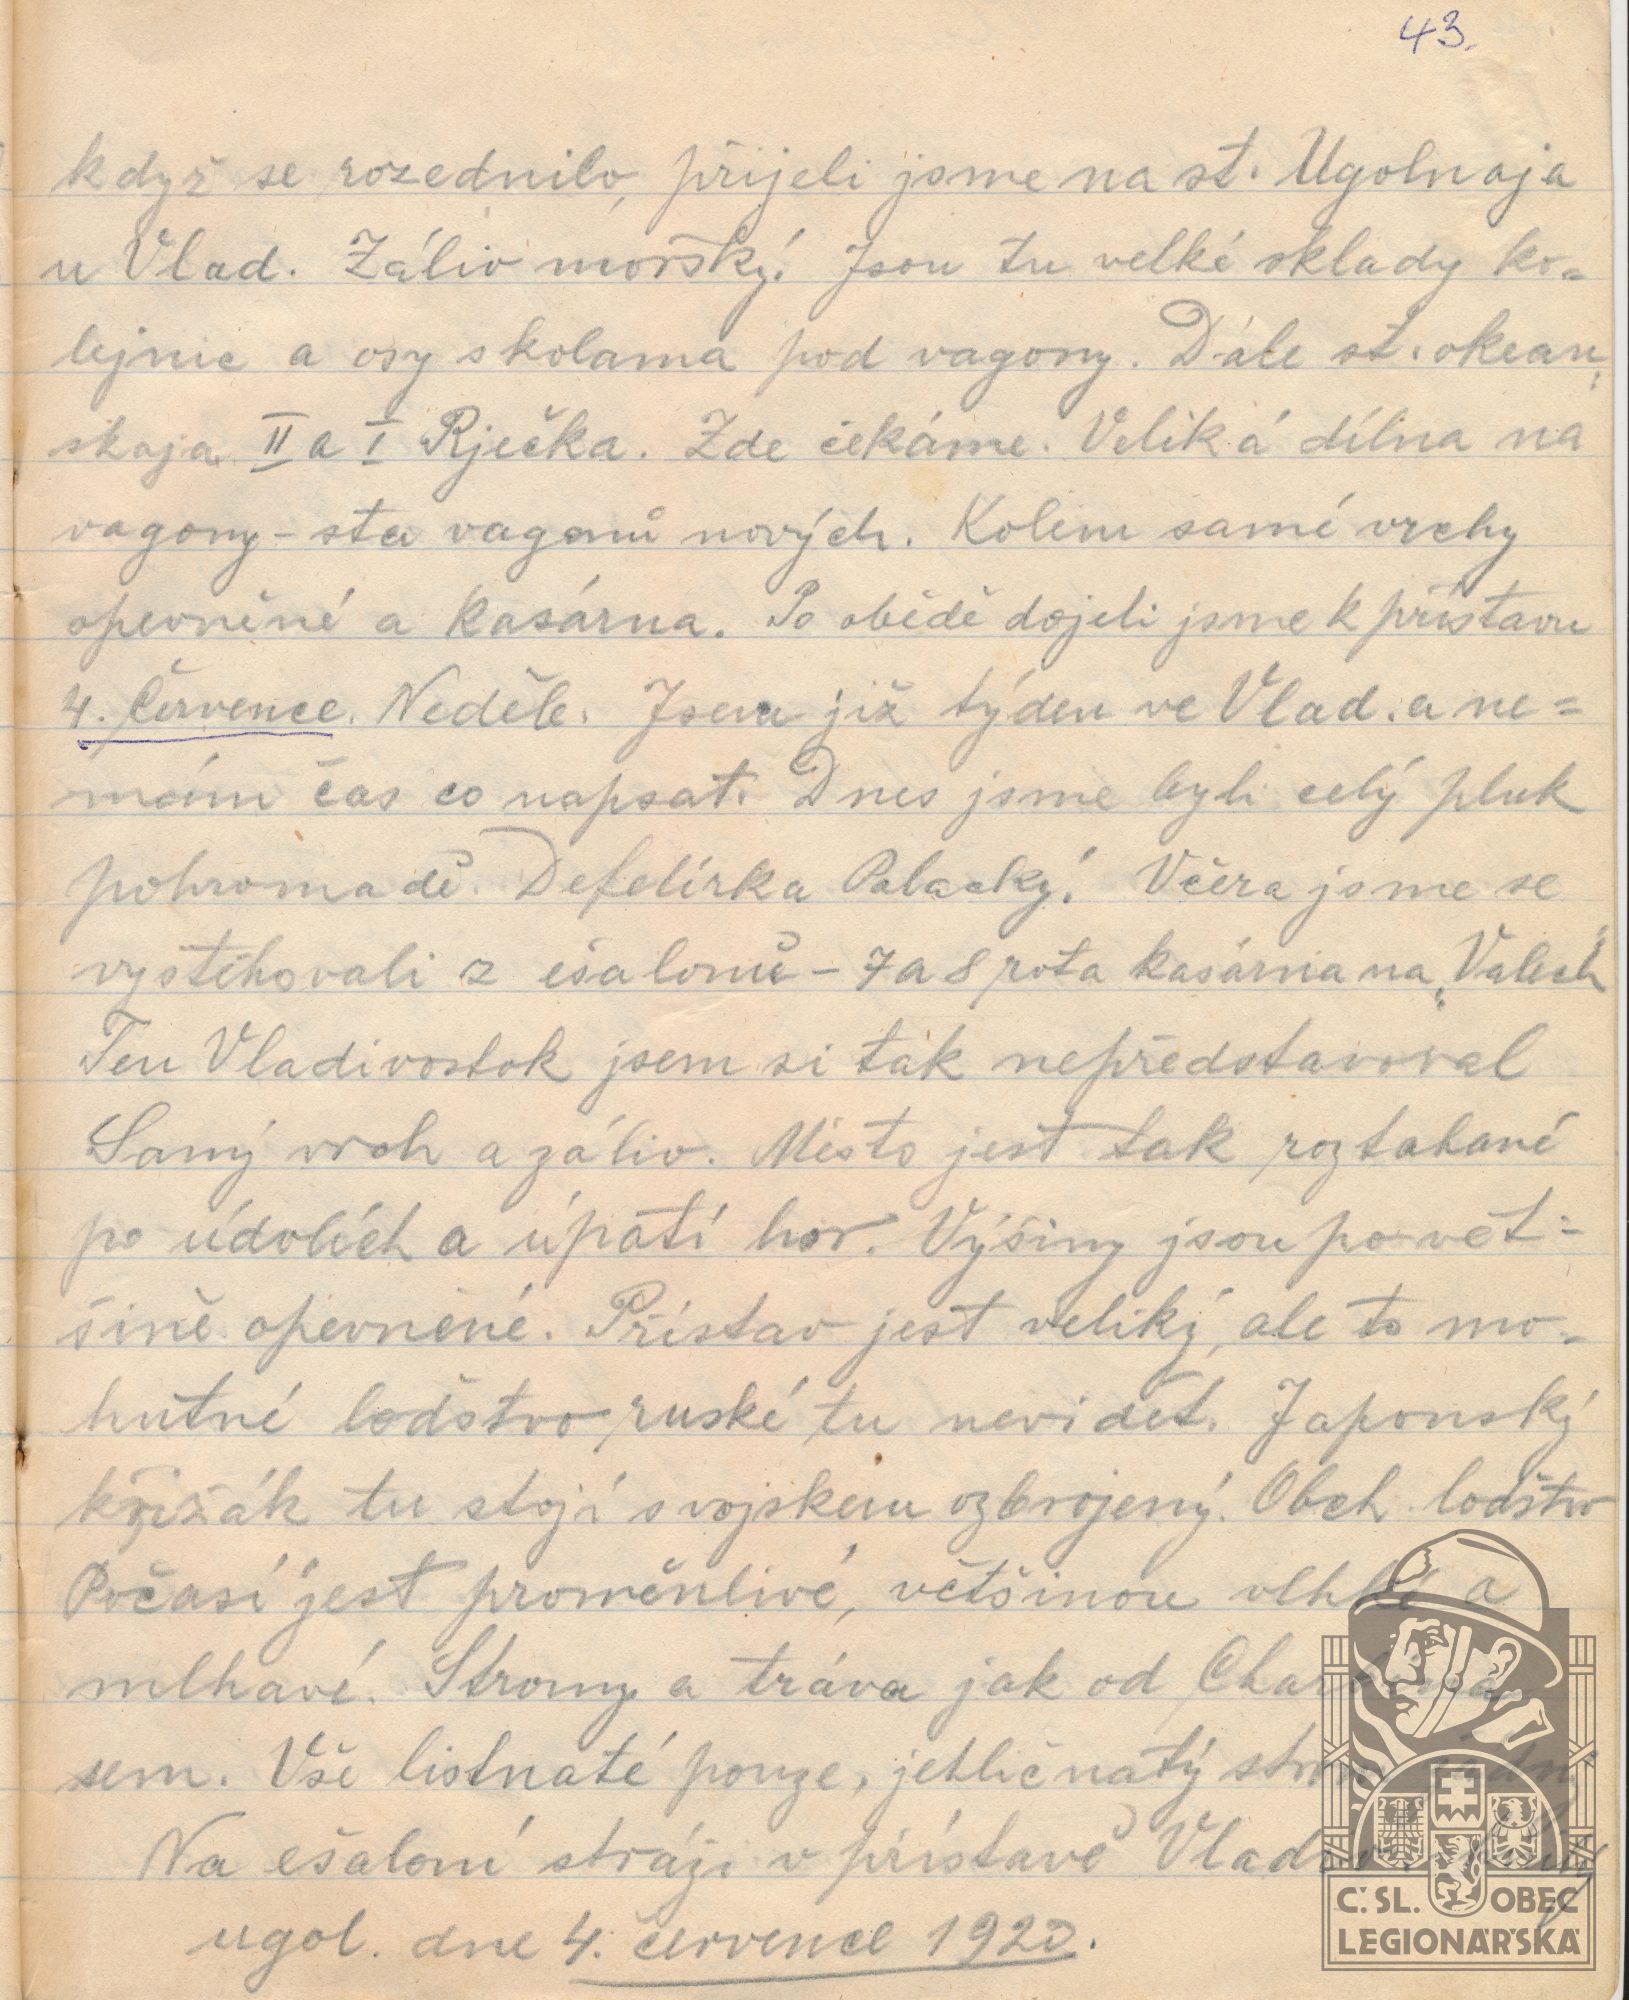 43.
když se rozednilo, přijeli jsme na st. Ugolnaja
u Vlad. Záliv mořský! Jsou tu velké sklady ko-
lejnic a osy s kolama pod vagony. Dále st. okean,
skaja II a I Rječka. Zde čekáme. Veliká dílna na
vagony - sta vagonů nových. Kolem samé vrchy
opevněné a kasárna. Po obědě dojeli jsme k přístavu
4. Července. Neděle. Jsem již týden ve Vlad. a ne=
mám čas co napsat. Dnes jsme byli celý pluk
pohromadě. Defelírka Palacký! Včera jsme se
vystěhovali z ešalonů - 7 a 8 rota kasárna na „Valech"
Ten Vladivostok jsem si tak nepředstavoval
Samý vrch a záliv. Město jest tak roztahané
po údolích a úpatí hor. Výšiny jsou po vět-
šině opevněné. Přístav jest veliký, ale to mo-
hutné loďstvo ruské tu nevidět. Japonský
křižák tu stojí s vojskem ozbrojený. Obch. loďstvo
Počasí jest proměnlivé, většinou vlhké a
mlhavé. Stromy a tráva jak od Charbina
sem. Vše listnaté pouze, jehličnatý strom
Na ešaloní stráži v přístavě Vladiv.
ugol. dne 4. července 1920.
Č.SL. OBEC
LEGIONÁŘSKÁ